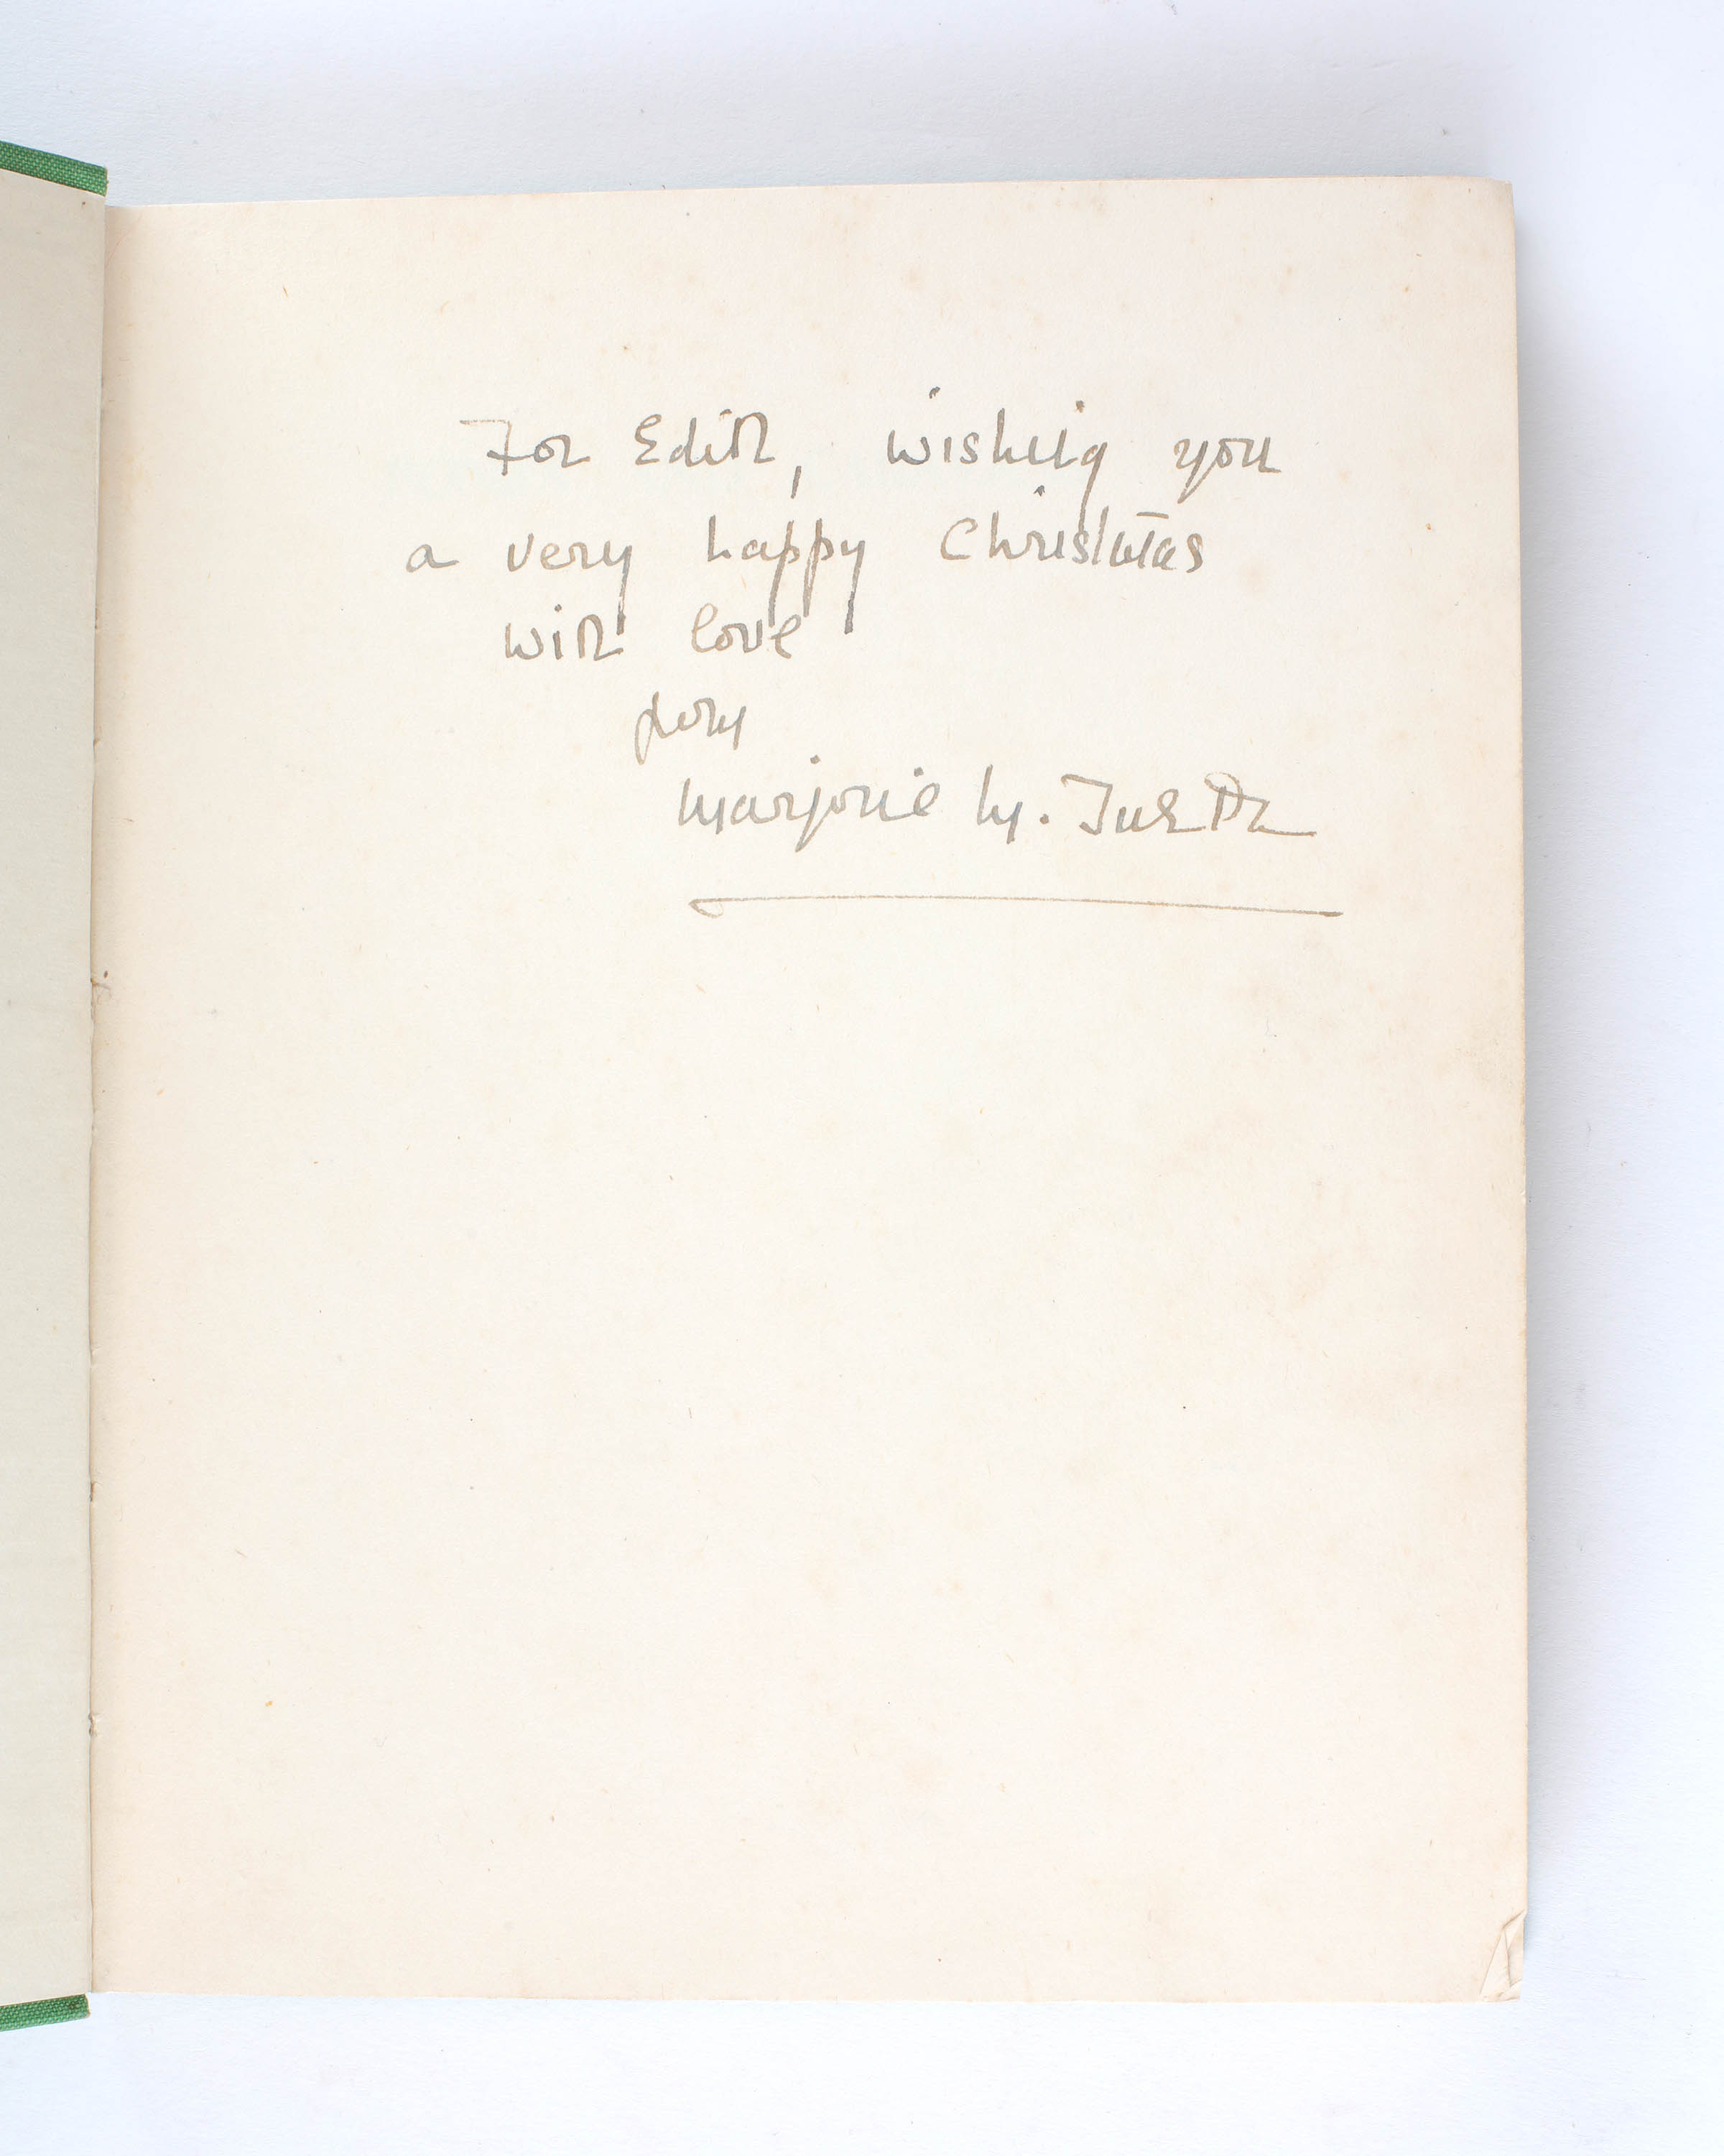 For Edith, wishing you
a very happy Christmas
with love
from
Marjorie M.